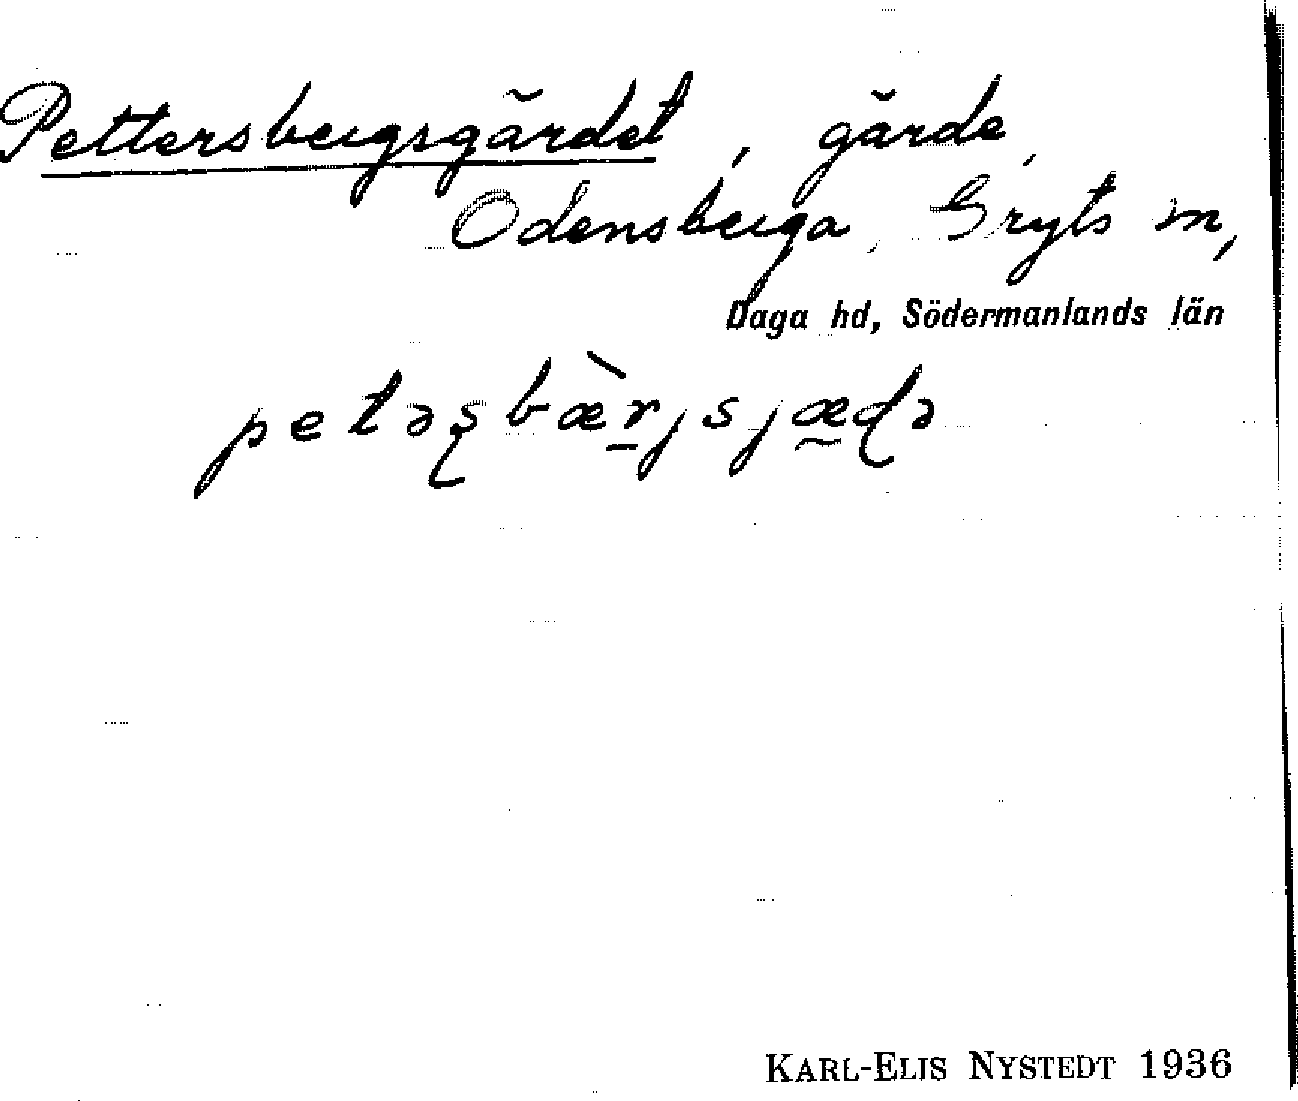 Pettersbergsgärdet, gärde,
Odensberga, Gryts sn,
Daga hd, Södermanlands län
petəʂbæ̀rjsjæɖə
KARL-ELIS NYSTEDT 1936